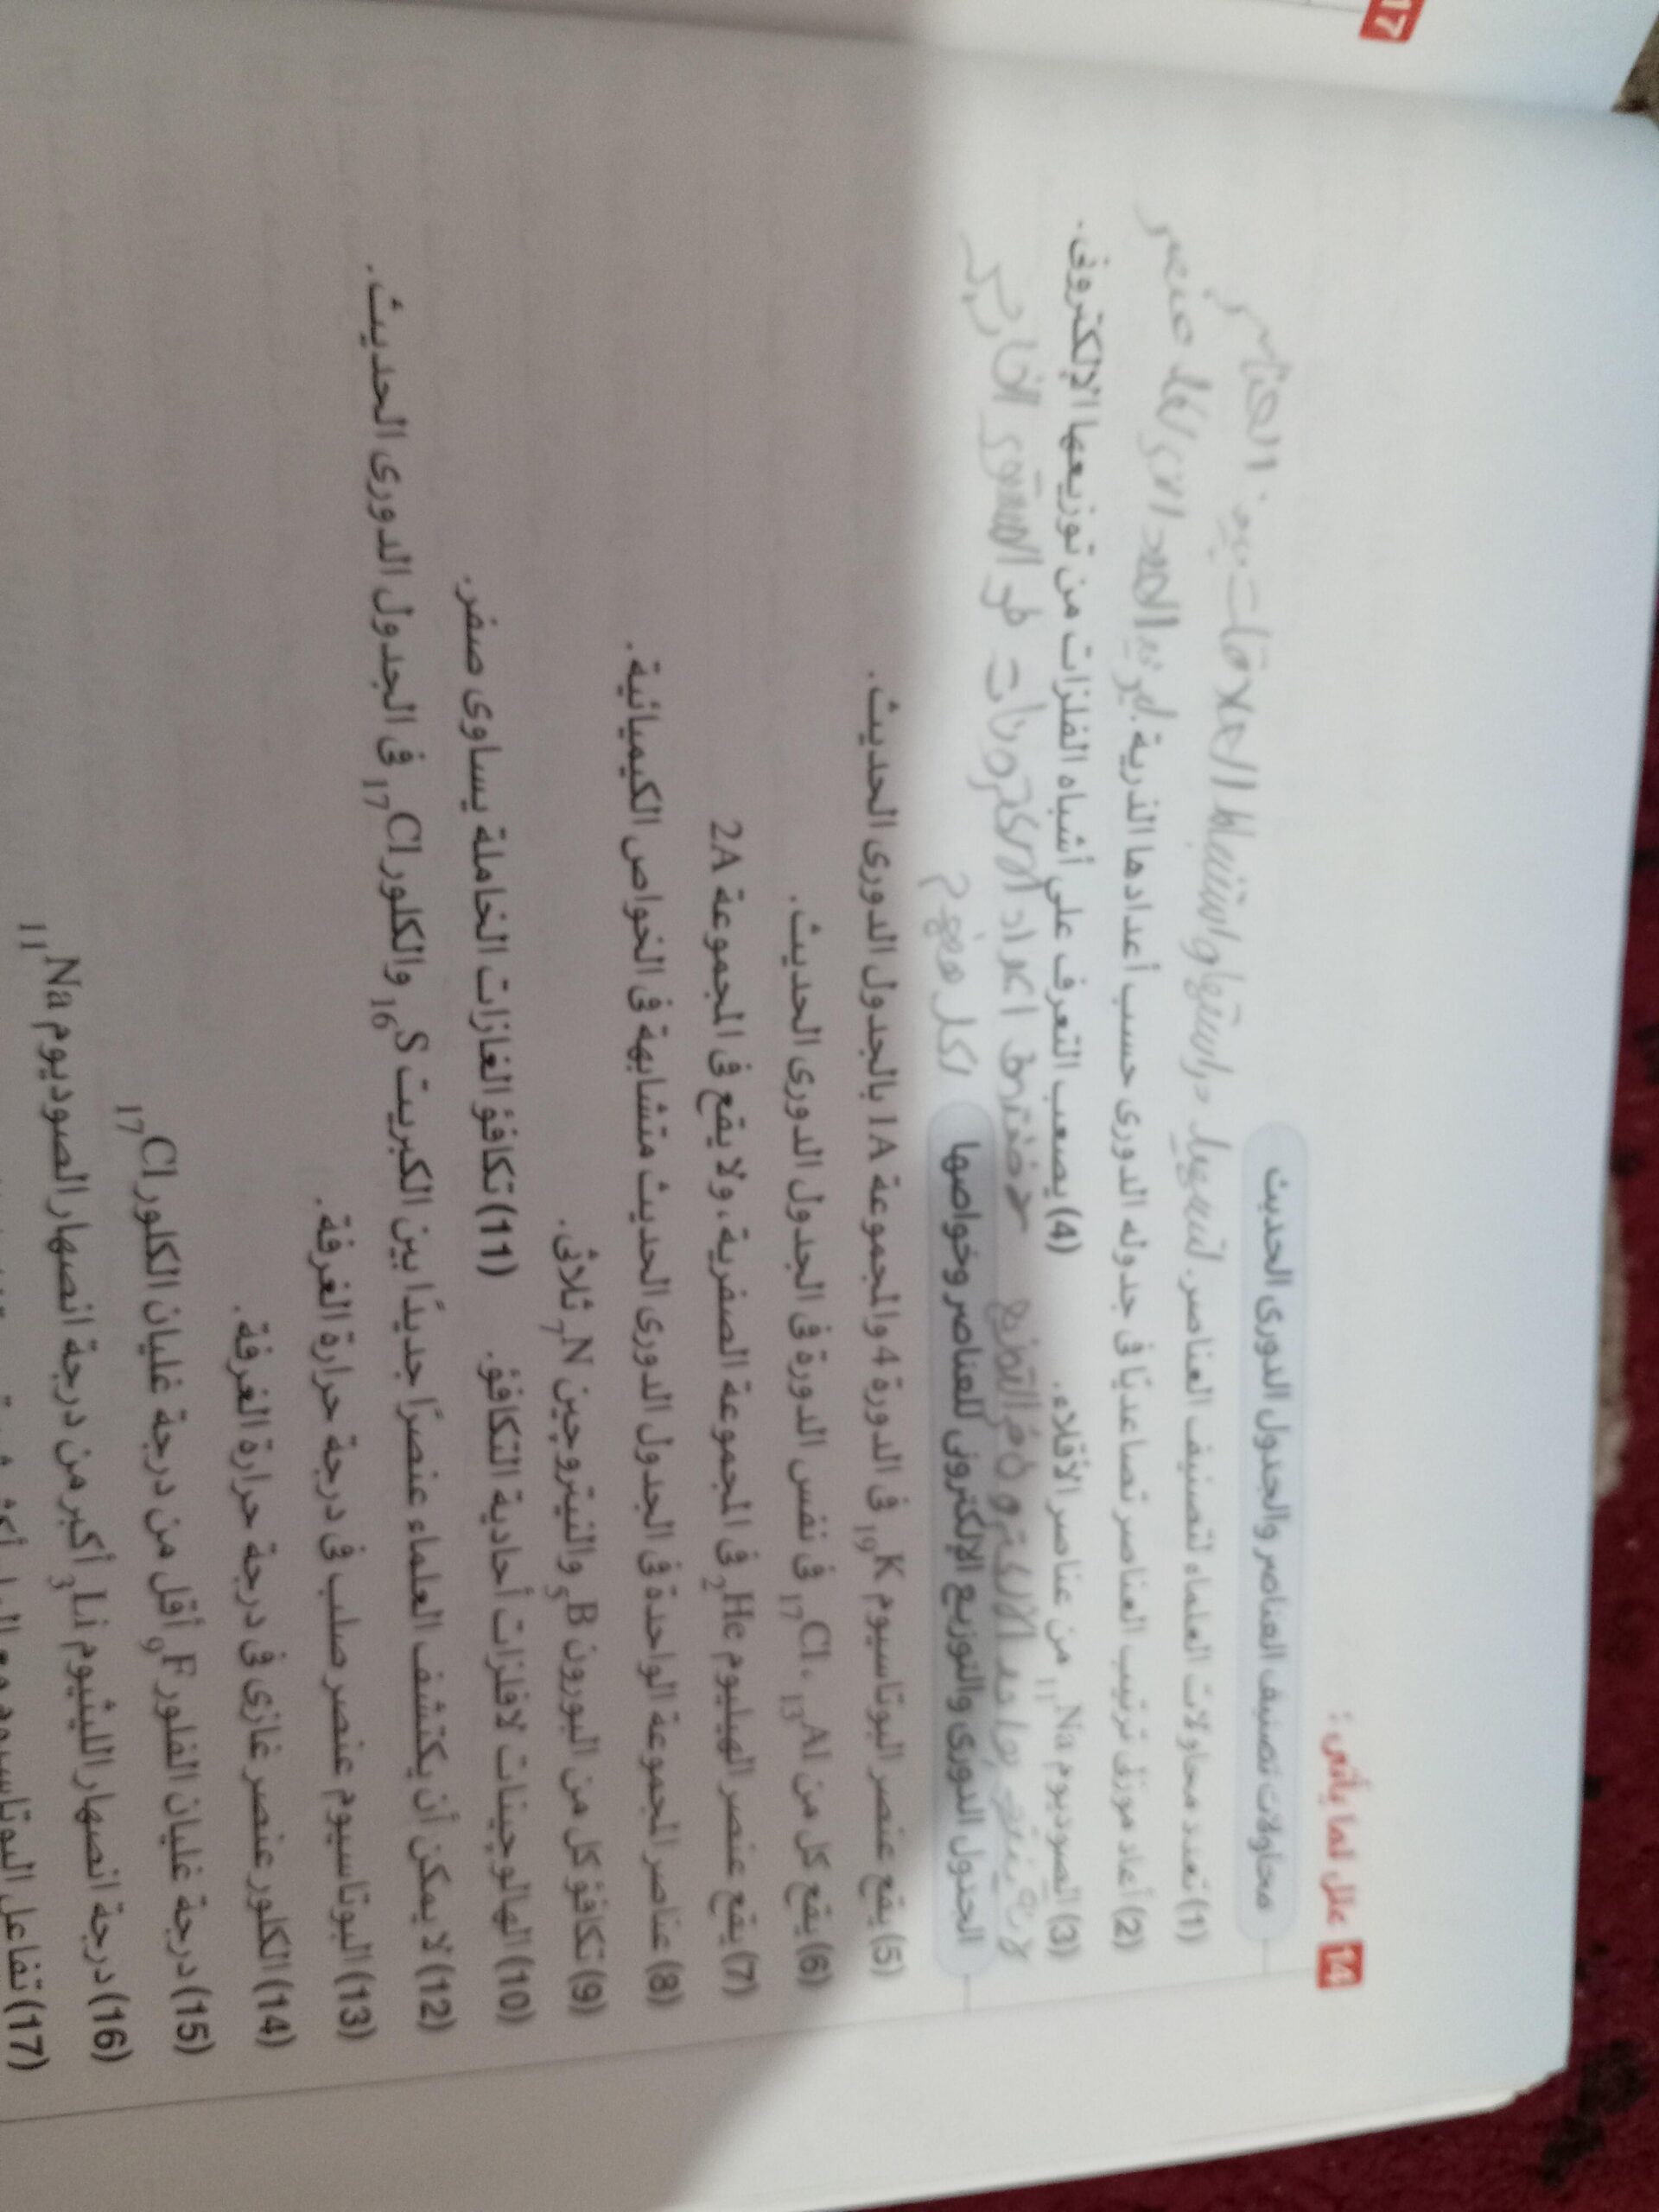 17
14 علل لما يأتى :
محاولات تصنيف العناصر والجدول الدورى الحديث
(1) تعدد محاولات العلماء لتصنيف العناصر. لتسهيل دراستها واستنباط العلاقات بين العناصر
(2) أعاد موزلى ترتيب العناصر تصاعديًا فى جدوله الدورى حسب أعدادها الذرية. العدد الذرى لكل عنصر
(3) الصوديوم 11Na من عناصر الأقلاء.
(4) يصعب التعرف على أشباه الفلزات من توزيعها الإلكترونى.
اعداد الالكترونات فى المستوى الخارجى
لكل منهم
الجدول الدورى والتوزيع الإلكترونى للعناصر وخواصها
(5) يقع عنصر البوتاسيوم 19K فى الدورة 4 والمجموعة 1A بالجدول الدورى الحديث.
(6) يقع كل من 17Cl ، 13Al فى نفس الدورة فى الجدول الدورى الحديث.
(7) يقع عنصر الهيليوم 2He فى المجموعة الصفرية، ولا يقع فى المجموعة 2A
(8) عناصر المجموعة الواحدة فى الجدول الدورى الحديث متشابهة فى الخواص الكيميائية.
(9) تكافؤ كل من البورون 5B والنيتروجين 7N ثلاثى.
(10) الهالوجينات لافلزات أحادية التكافؤ.
(11) تكافؤ الغازات الخاملة يساوى صفر.
(12) لا يمكن أن يكتشف العلماء عنصرًا جديدًا بين الكبريت 16S والكلور 17Cl فى الجدول الدورى الحديث.
(13) البوتاسيوم عنصر صلب فى درجة حرارة الغرفة.
(14) الكلور عنصر غازى فى درجة حرارة الغرفة.
(15) درجة غليان الفلور 9F أقل من درجة غليان الكلور 17Cl
(16) درجة انصهار الليثيوم 3Li أكبر من درجة انصهار الصوديوم 11Na
(17) تفاعل البوتاسيوم مع الماء أكثر